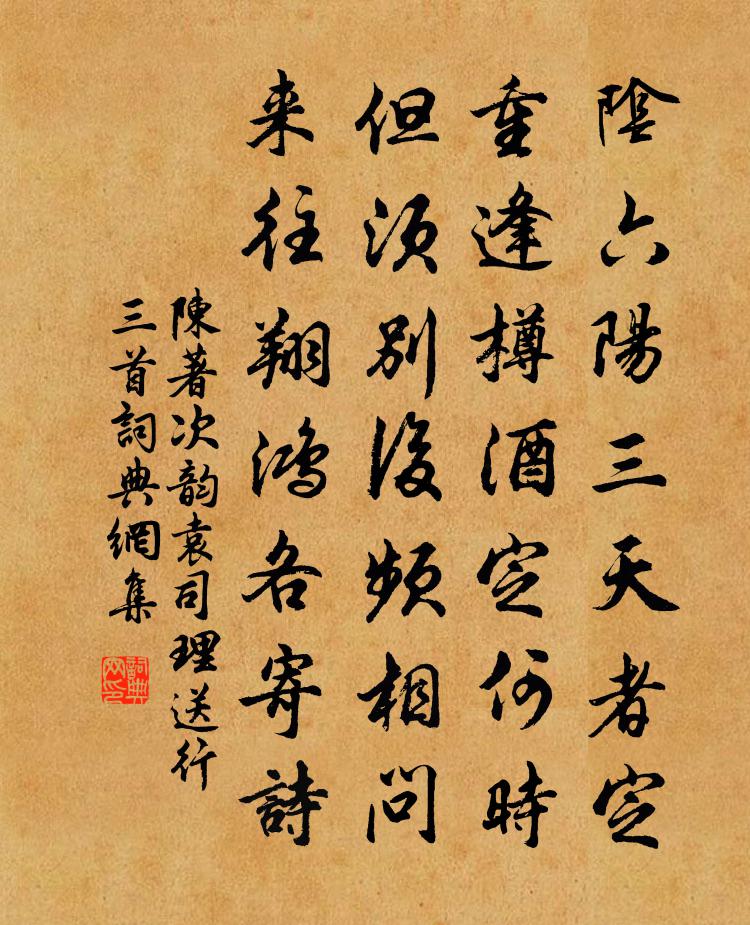 陰六陽三天者定
重逢樽酒定何時
但須別後頻相問
来往翔鴻各寄詩
陳著次韵袁司理送行
三首詞典網集
詞典網印